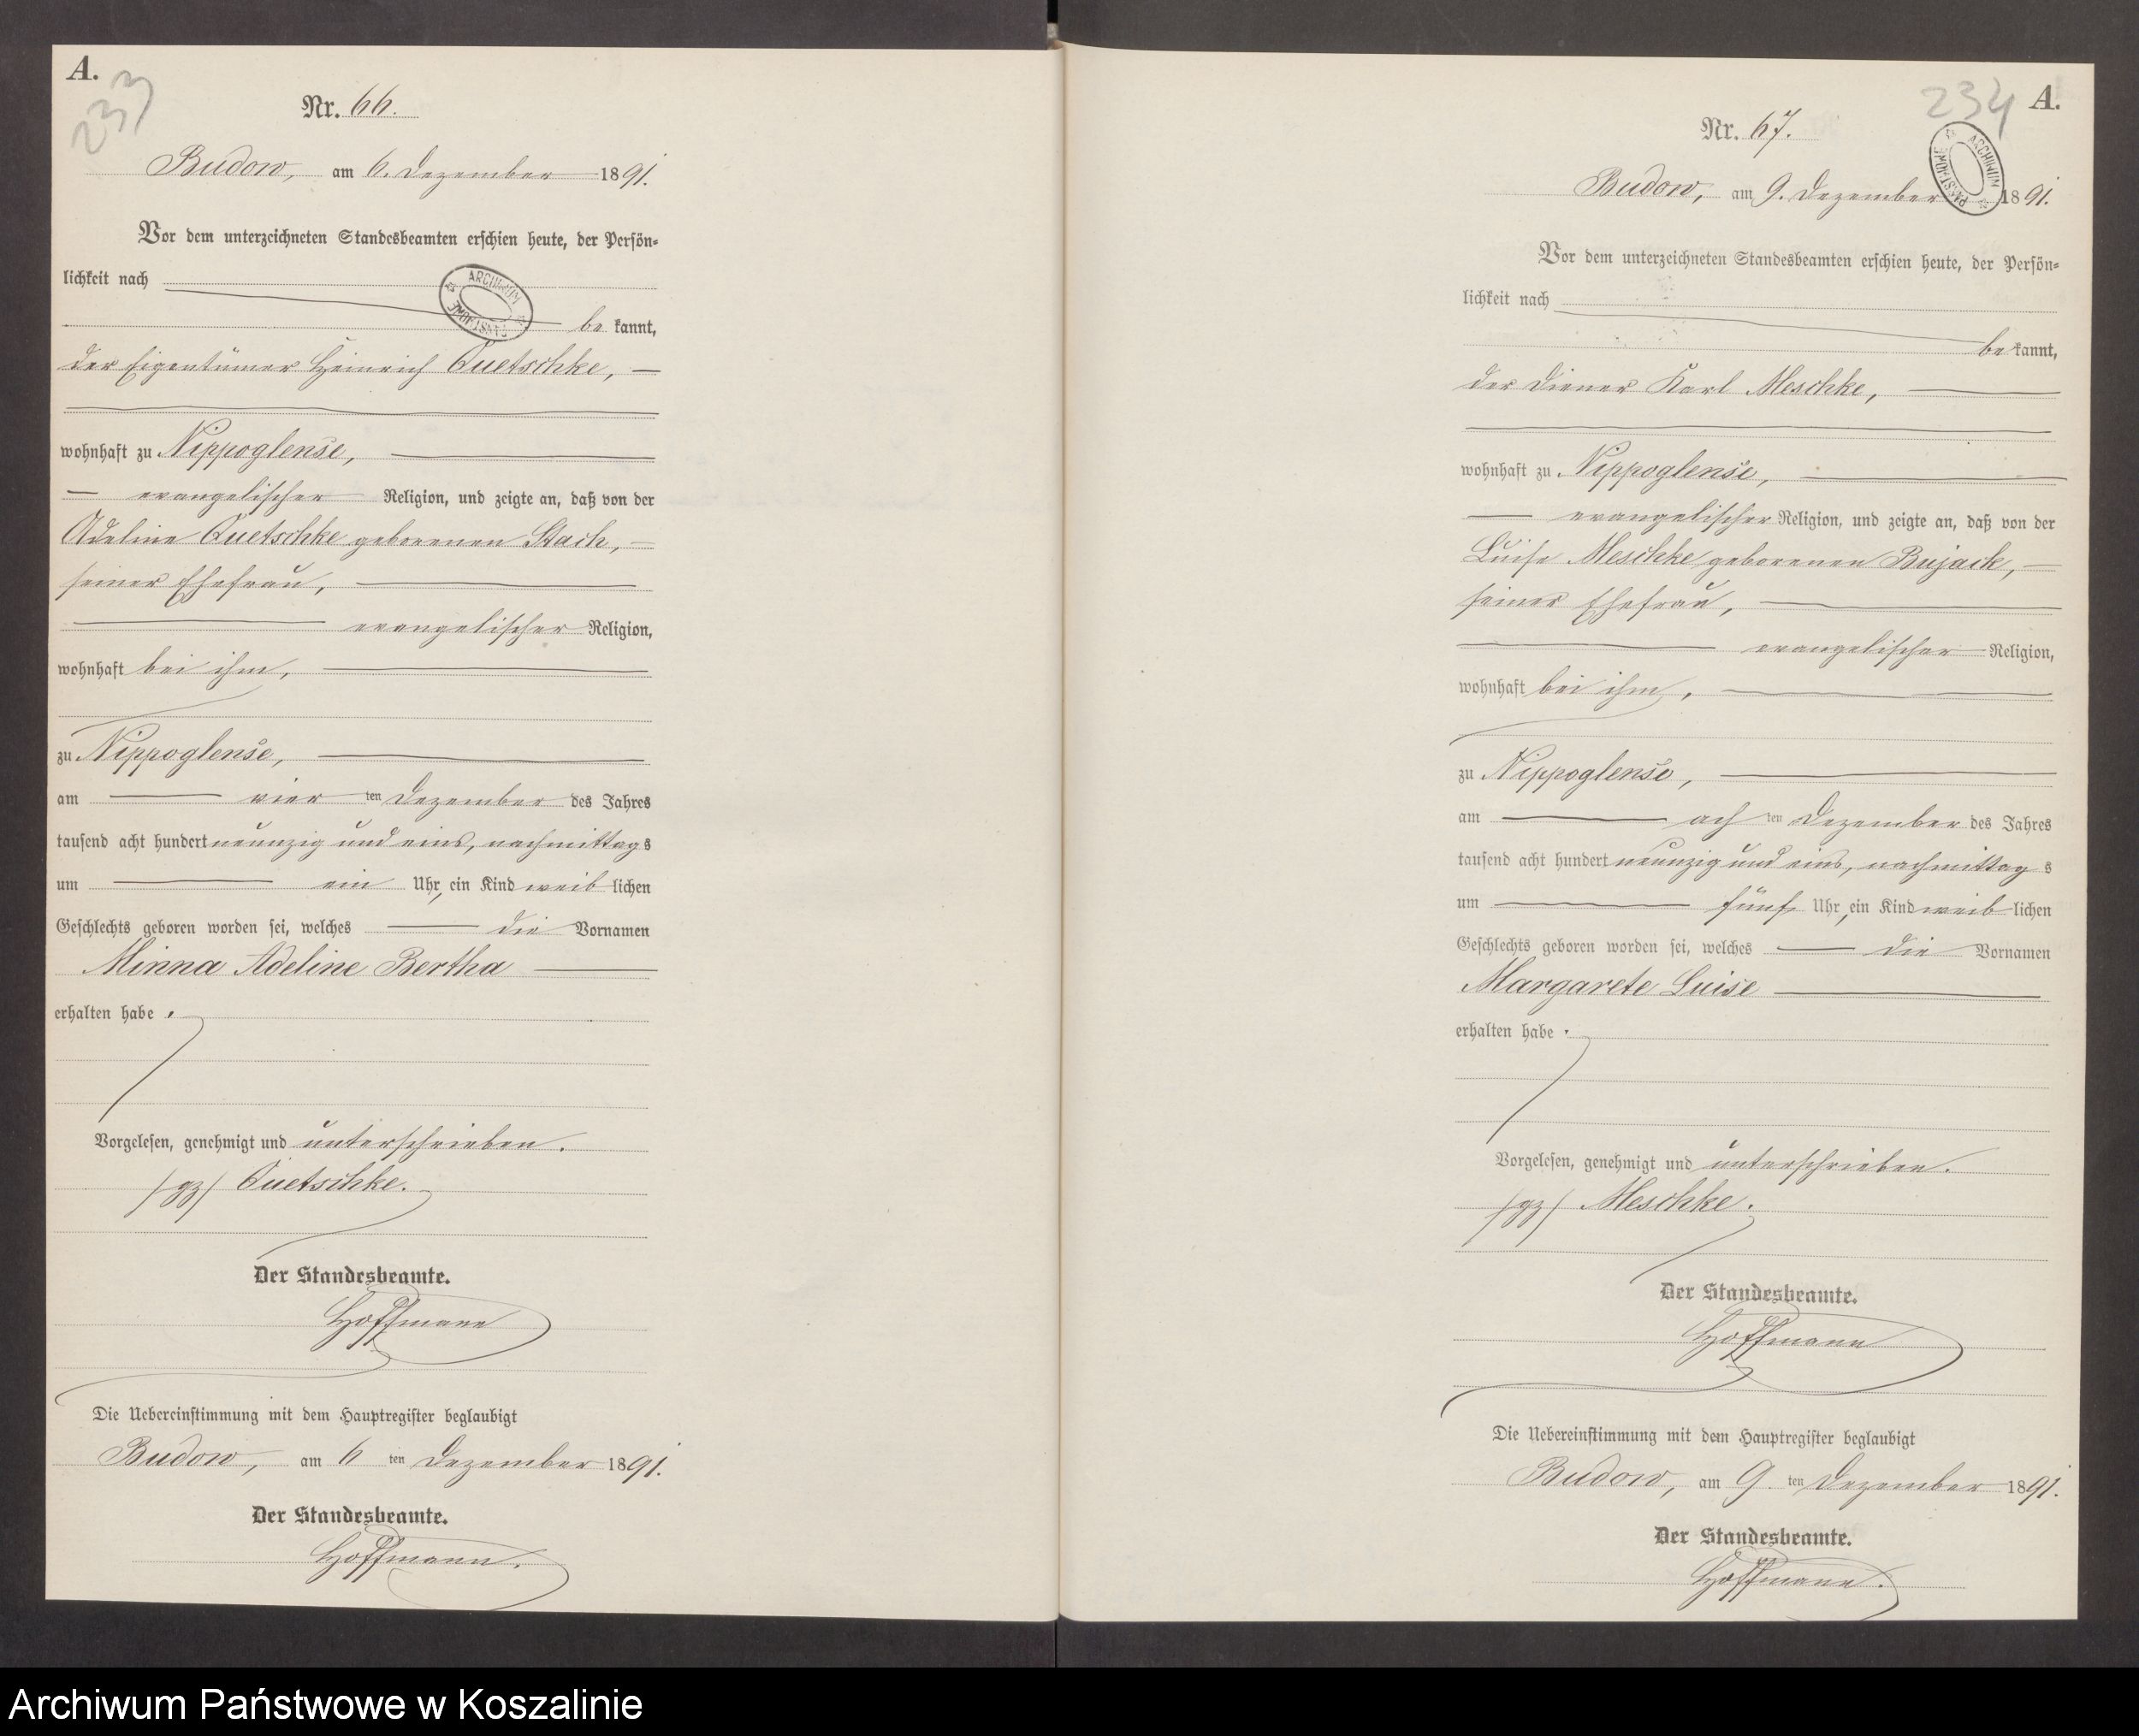 A.
233
Nr. 66.
Budow, am 6. Dezember 1891.
Vor dem unterzeichneten Standesbeamten erschien heute, der Persön=
lichkeit nach
be kannt,
der Eigentümer Heinrich Quetschke,
wohnhaft zu Nippoglense,
evangelischer Religion, und zeigte an, daß von der
Adeline Quetschke geborenen Stach,
seiner Ehefrau,
evangelischer Religion,
wohnhaft bei ihm,
zu Nippoglense,
am vier ten Dezember des Jahres
tausend acht hundert neunzig und eins, nachmittags
um ein Uhr, ein Kind weiblichen
Geschlechts geboren worden sei, welches die Vornamen
Minna Adeline Bertha
erhalten habe.
Vorgelesen, genehmigt und unterschrieben.
/gz/ Quetschke.
Der Standesbeamte.
Hoffmann
Die Uebereinstimmung mit dem Hauptregister beglaubigt
Budow, am 6 ten Dezember 1891.
Der Standesbeamte.
Hoffmann.
234
A.
Nr. 67.
Budow, am 9. Dezember 1891.
Vor dem unterzeichneten Standesbeamten erschien heute, der Persön=
lichkeit nach
be kannt,
der Diener Karl Meschke,
wohnhaft zu Nippoglense,
evangelischer Religion, und zeigte an, daß von der
Luise Meschke geborenen Bujack,
seiner Ehefrau,
evangelischer Religion,
wohnhaft bei ihm,
zu Nippoglense,
am ach ten Dezember des Jahres
tausend acht hundert neunzig und eins, nachmittags
um fünf Uhr, ein Kind weiblichen
Geschlechts geboren worden sei, welches die Vornamen
Margarete Luise
erhalten habe.
Vorgelesen, genehmigt und unterschrieben.
/gz/ Meschke.
Der Standesbeamte.
Hoffmann
Die Uebereinstimmung mit dem Hauptregister beglaubigt
Budow, am 9. ten Dezember 1891.
Der Standesbeamte.
Hoffmann.
ARCHIWUM
ARCHIWUM
Archiwum Państwowe w Koszalinie